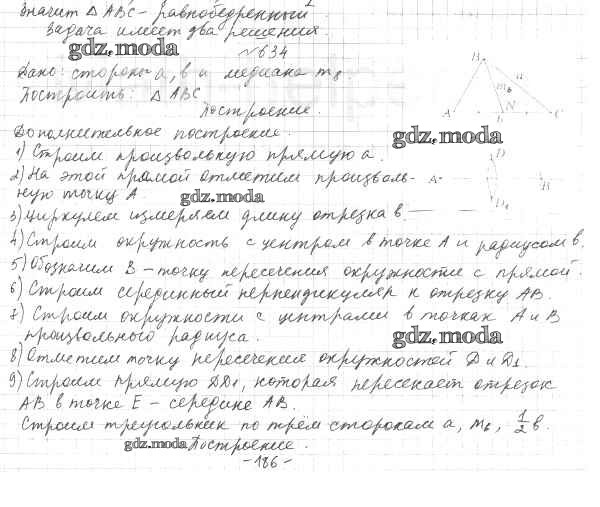 Значит △ ABC - равнобедренный.
Задача имеет два решения.
gdz.moda
№634
Дано: стороны a, b и медиана m_b
Построить: △ ABC
Построение.
B
a
m_b
N
A
b
C
Дополнительное построение.
gdz.moda
1) Строим произвольную прямую a.
2) На этой прямой отметим произволь-
ную точку A
gdz.moda
D
A
B
D₁
3) Циркулем измеряем длину отрезка b.
4) Строим окружность с центром в точке A и радиусом b.
5) Обозначим B - точку пересечения окружности с прямой.
6) Строим серединный перпендикуляр к отрезку AB.
7) Строим окружности с центрами в точках A и B
произвольного радиуса.
gdz.moda
8) Отметим точку пересечения окружностей D и D₁.
9) Строим прямую DD₁, которая пересекает отрезок
AB в точке E - середине AB.
Строим треугольник по трём сторонам a, m_b, 1/2 b.
gdz.moda
Построение.
-186-